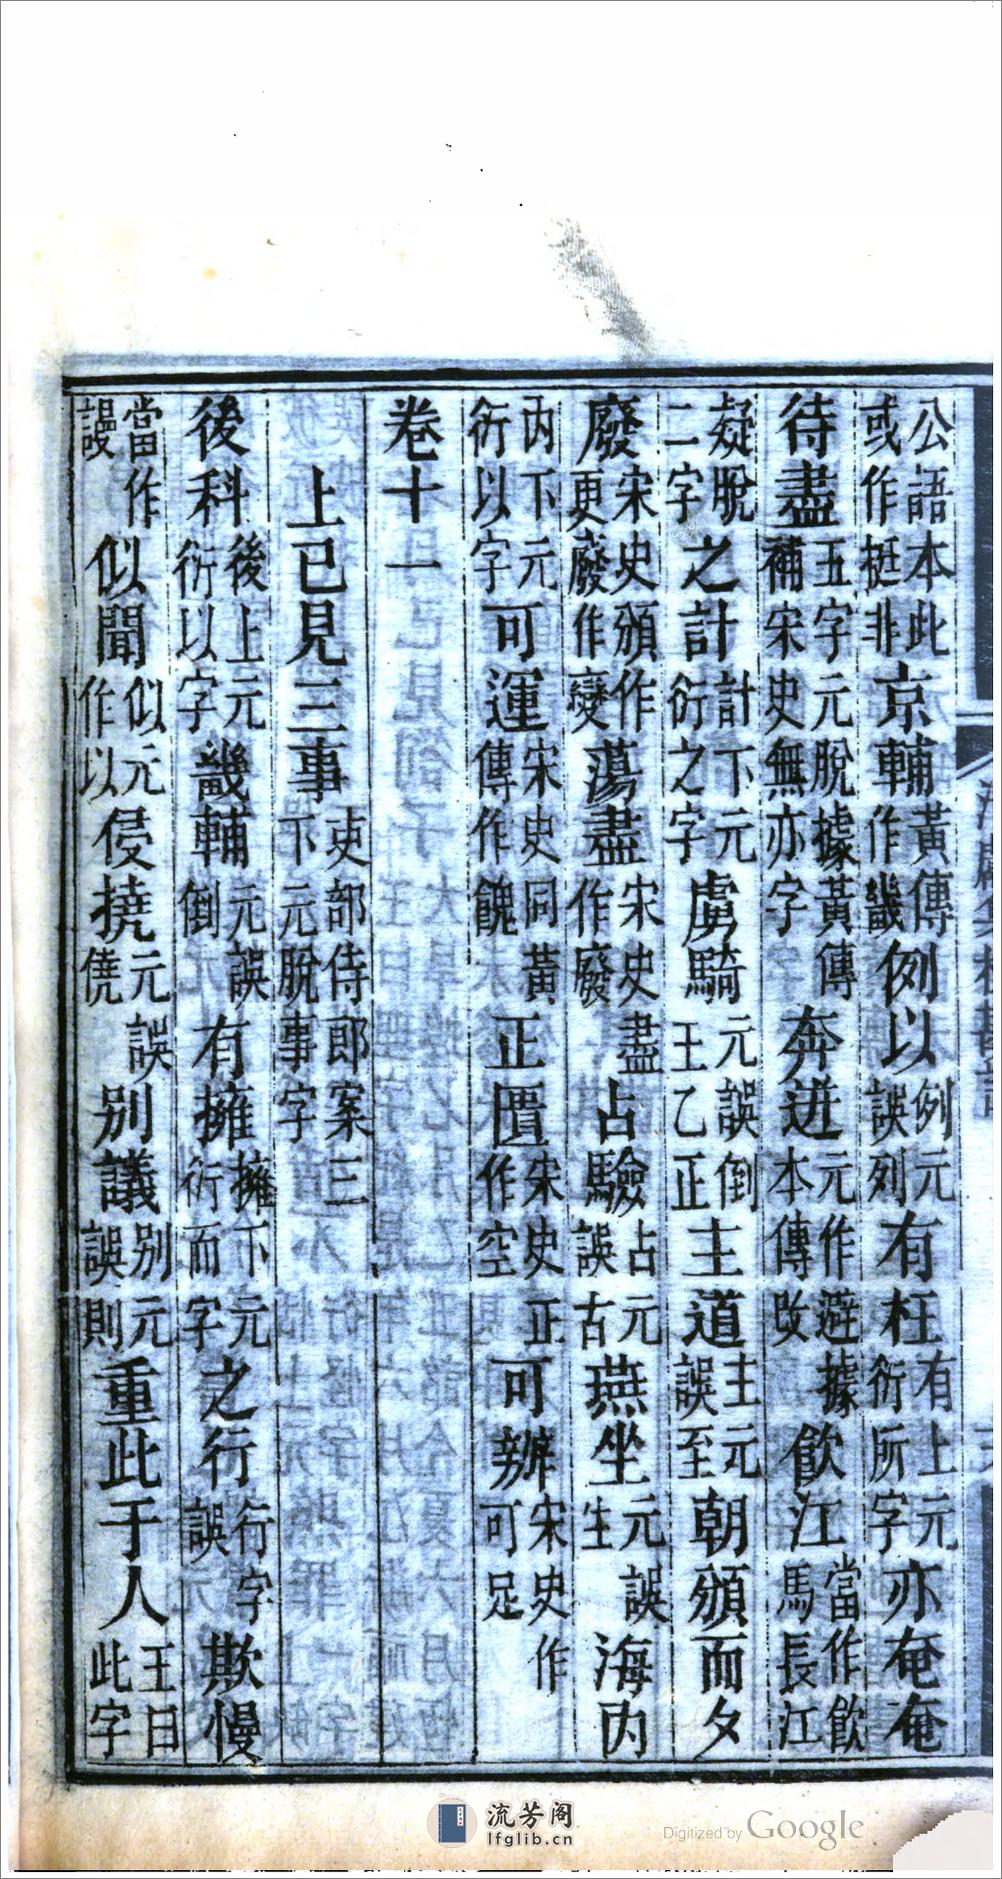 公語本此或作挺非京輔黃傳作畿例以例元誤列有枉有上元衍所字亦奄奄
待盡五字元脫據黃傳補宋史無亦字奔迸元作避據本傳改飲江當作飲馬長江
疑脫二字之計計下元衍之字虜騎元誤倒王乙正主道主元誤至朝頒而夕
廢宋史頒作更廢作變蕩盡宋史盡作廢占驗占元誤古燕坐元誤生海内
内下元衍以字可運宋史同黃傳作餽正匱宋史正作空可辨宋史作可足
卷十一
上已見三事吏部侍郎案三下元脫事字
後科後上元衍以字畿輔元誤倒有擁擁下元衍而字之行行字誤欺慢
當作謾似聞似元作以侵撓元誤僥别議别元誤則重此于人王曰此字
流芳阁
lfglib.cn
Digitized by Google